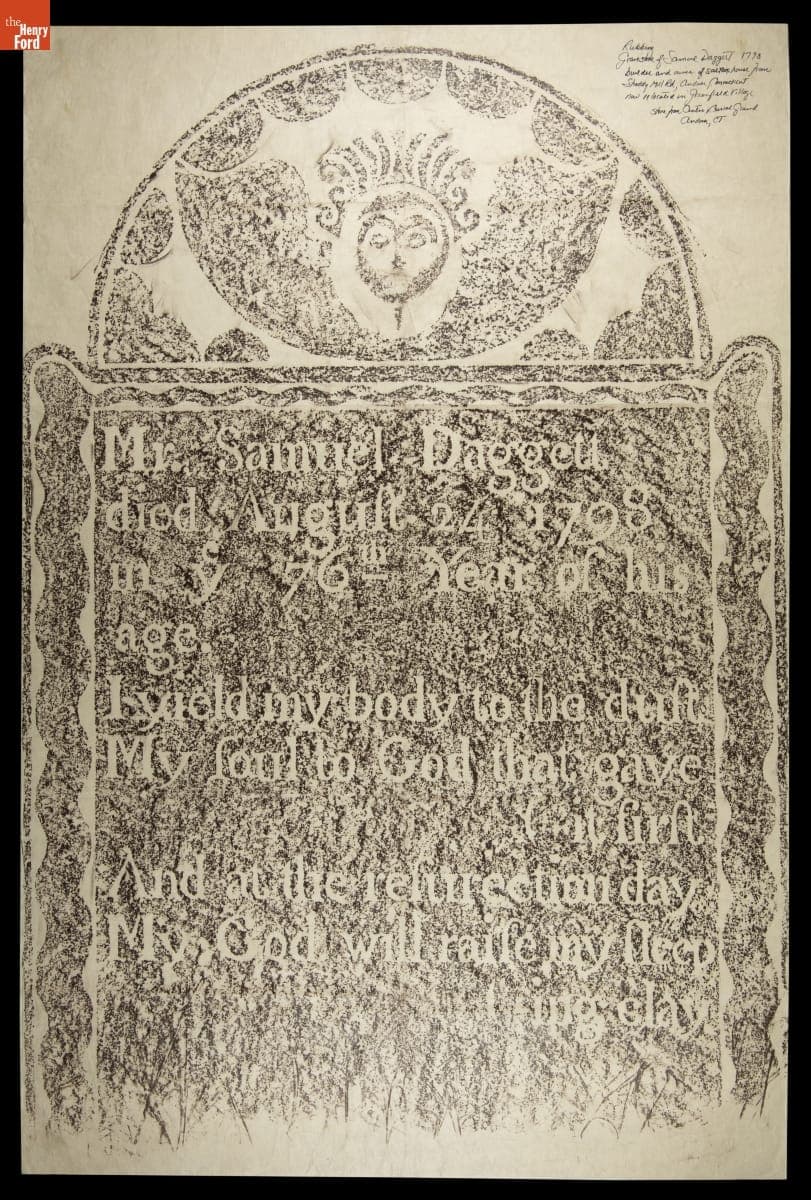 the
Henry
Ford
Rubbing
Gravestone of Samuel Daggett 1798
builder and owner of saltbox house from
Shoddy Mill Rd, Andover Connecticut
now relocated in Greenfield Village
stone from Center Burial Ground
Andover, CT
Mr. Samuel Daggett
died Auguſt 24 1798.
in yͤ 76th Year of his
age.
I yield my body to the duſt
My ſoul to God that gave
it firſt
And at the reſurrection day
My God will raiſe my ſleep
ing clay